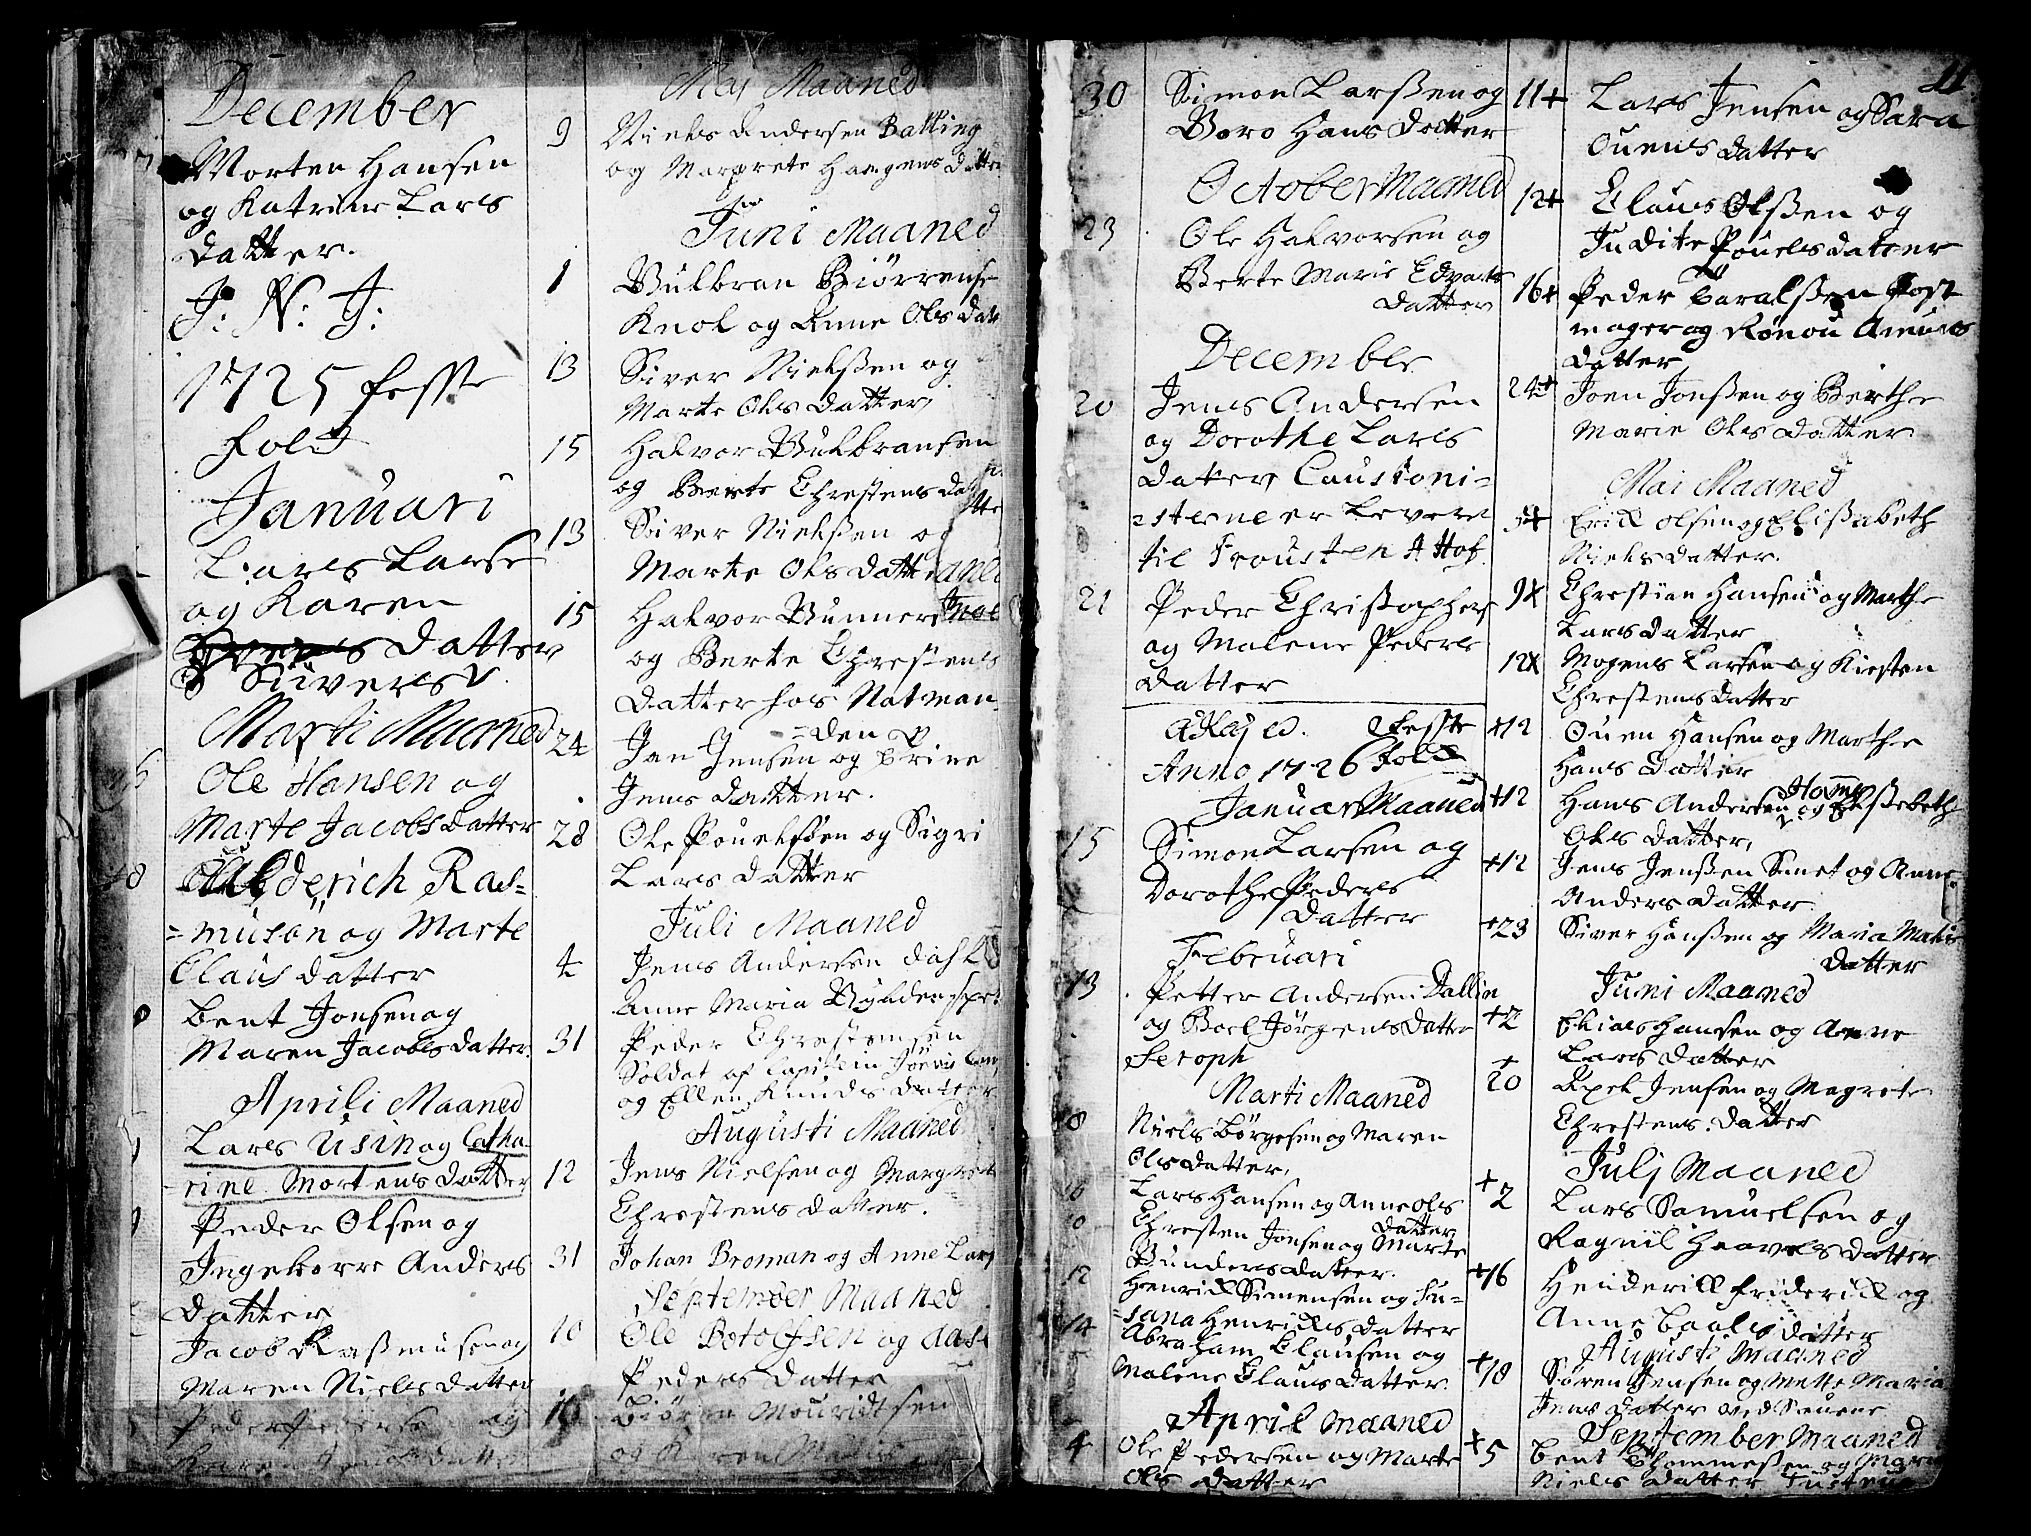 December
Morten Hansen
og Katrine Lars
datter.
J: N: J:
1725 Feste
Fold
Januari
Lars Larse
og Karen
datter
Siivers
Marti Maaned
Ole Hansen og
Marte Jacobs datter
Diderich Ras=
=musøn og Marte
Claus datter
Bent Jonsen og
Maren Jacobs datter.
Aprili Maaned
Lars Usin og Catha-
rine Mortens datter
Peder Olsen og
Ingeborre Anders
datter
Jacob Rasmusen og
Maren Niels datter
Peder og
datter
Maj Maaned
9 Niels Andersen Balling
og Margrete datter
Juni Maaned
1 Gulbran Biørrense
Knol og Anne Ols dat
13 Siver Nielssen og
Marte Ols datter
15 Halvor Gulbransen
og Berte Chrestens dat
13 Siver Nielssen og
Marte Ols datter
15 Halvor Gunners
og Berte Chrestens
datter hos Natman
=den
24 Jan Jensen og Trine
Jens datter.
28 Ole Pouelssen og Sigri
Lars datter
Juli Maaned
4 Jens Andersen
Anne Maria
31 Peder Chrestensen
Soldat af Capitein
og Ellen Knuds datter
Augusti Maaned
12 Jens Nielsen og Margret
Chrestens datter.
31 Johan Broman og Anne Lars
September Maaned
10 Ole Botolfsen og Aase
Peders datter
16 Biørn Mouridtsen
og Karen
11
30 Simon Larssen og
Goro Hans datter
October Maaned
23 Ole Halvorsen og
Berte Marie Edvarts
datter
December
20 Jens Andersen
og Dorothe Lars
dater Caustoni=
=sterne er levere
til Frousten A Hof
21 Peder Christophers
og Malene Peders
datter
Feste
Anno 1726 Fold
Januar Maaned
15 Simon Larsen og
Dorothe Peders
datter
Februari
13 Petter Andersen Dallin
og Boel Jørgens datter
Marti Maaned
8 Niels Børgesen og Maren
Ols datter.
10 Lars Hansen og Anne Ols
datter
10 Chresten Jonsen og Marte
Gunders datter.
12 Henrich Simensen og Su=
=sana Henrichs datter
14 Abraham Clausen og
Malene Claus datter.
April Maaned
4 Ole Pedersen og Marte
Ols datter
11+ Lars Jensen og Sara
Ouens datter
12+ Claus Olssen og
Judite Pouels dater
16+ Peder
mager og Rønou
datter
24+ Joen Jonssen og Berthe
Marie Ols datter
Mai Maaned
Erich Olsen og Elisabeth
Niels datter.
9x Chrestian Hansen og Marthe
Lars datter
12x Mogens Larsen og Kiesten
Chrestens datter
+12 Ouen Hansen og Marthe
Hans datter
+12 Hans Andersen og Elssebeth
Ols datter,
+12 Jens Jenssen Smet og Anne
Anders datter
+23 Siver Hanssen og Maria
datter
Juni Maaned
+2 Elias Hansen og Anne
Lars datter
+
20 Axel Jensen og Magrete
Chrestens. datter
Julj Maaned
+2 Lars Samuelsen og
Ragnil datter
+16 Henderich Friderich og
Anne datter
Augusti Maaned
+18 Søren Jensen og Mette Maria
Jens datter
September Maaned
+5 Bent Thommessen og
Niels datter